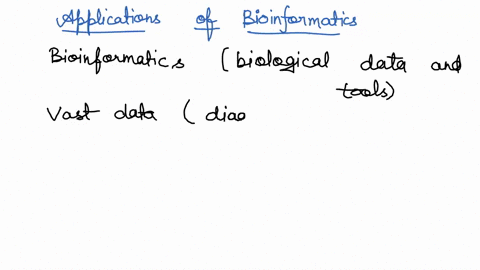 Applications of Bioinformatics
Bioinformatics (biological data and
tools)
Vast data ( diao